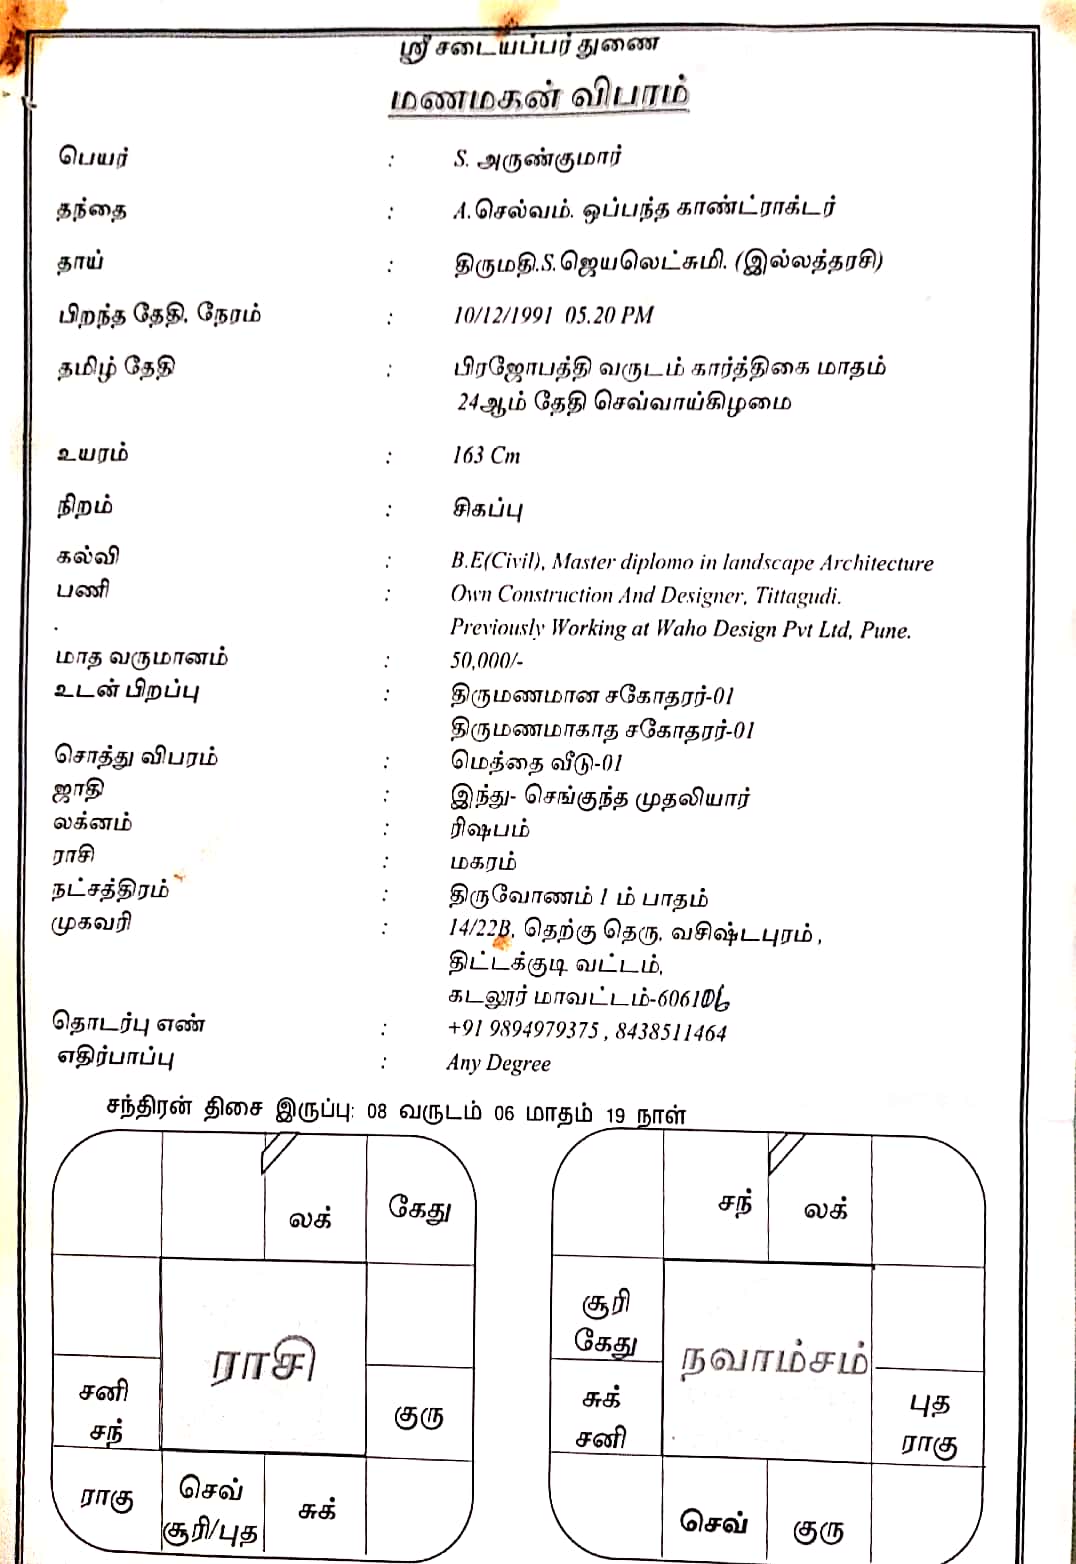 ஸ்ரீ சடையப்பர் துணை
மணமகன் விபரம்
பெயர் : S. அருண்குமார்
தந்தை : A.செல்வம். ஒப்பந்த காண்ட்ராக்டர்
தாய் : திருமதி.S.ஜெயலெட்சுமி. (இல்லத்தரசி)
பிறந்த தேதி, நேரம் : 10/12/1991 05.20 PM
தமிழ் தேதி : பிரஜோபத்தி வருடம் கார்த்திகை மாதம்
24ஆம் தேதி செவ்வாய்கிழமை
உயரம் : 163 Cm
நிறம் : சிகப்பு
கல்வி : B.E(Civil), Master diplomo in landscape Architecture
பணி : Own Construction And Designer, Tittagudi.
. Previously Working at Waho Design Pvt Ltd, Pune.
மாத வருமானம் : 50,000/-
உடன் பிறப்பு : திருமணமான சகோதரர்-01
திருமணமாகாத சகோதரர்-01
சொத்து விபரம் : மெத்தை வீடு-01
ஜாதி : இந்து- செங்குந்த முதலியார்
லக்னம் : ரிஷபம்
ராசி : மகரம்
நட்சத்திரம் : திருவோணம் 1 ம் பாதம்
முகவரி : 14/22B, தெற்கு தெரு, வசிஷ்டபுரம் ,
திட்டக்குடி வட்டம்,
கடலூர் மாவட்டம்-606106
தொடர்பு எண் : +91 9894979375 , 8438511464
எதிர்பாப்பு : Any Degree
சந்திரன் திசை இருப்பு: 08 வருடம் 06 மாதம் 19 நாள்
லக் கேது
ராசி
சனி
சந்
குரு
ராகு
செவ்
சூரி/புத
சுக்
சந் லக்
சூரி
கேது
நவாம்சம்
சுக்
சனி
புத
ராகு
செவ் குரு